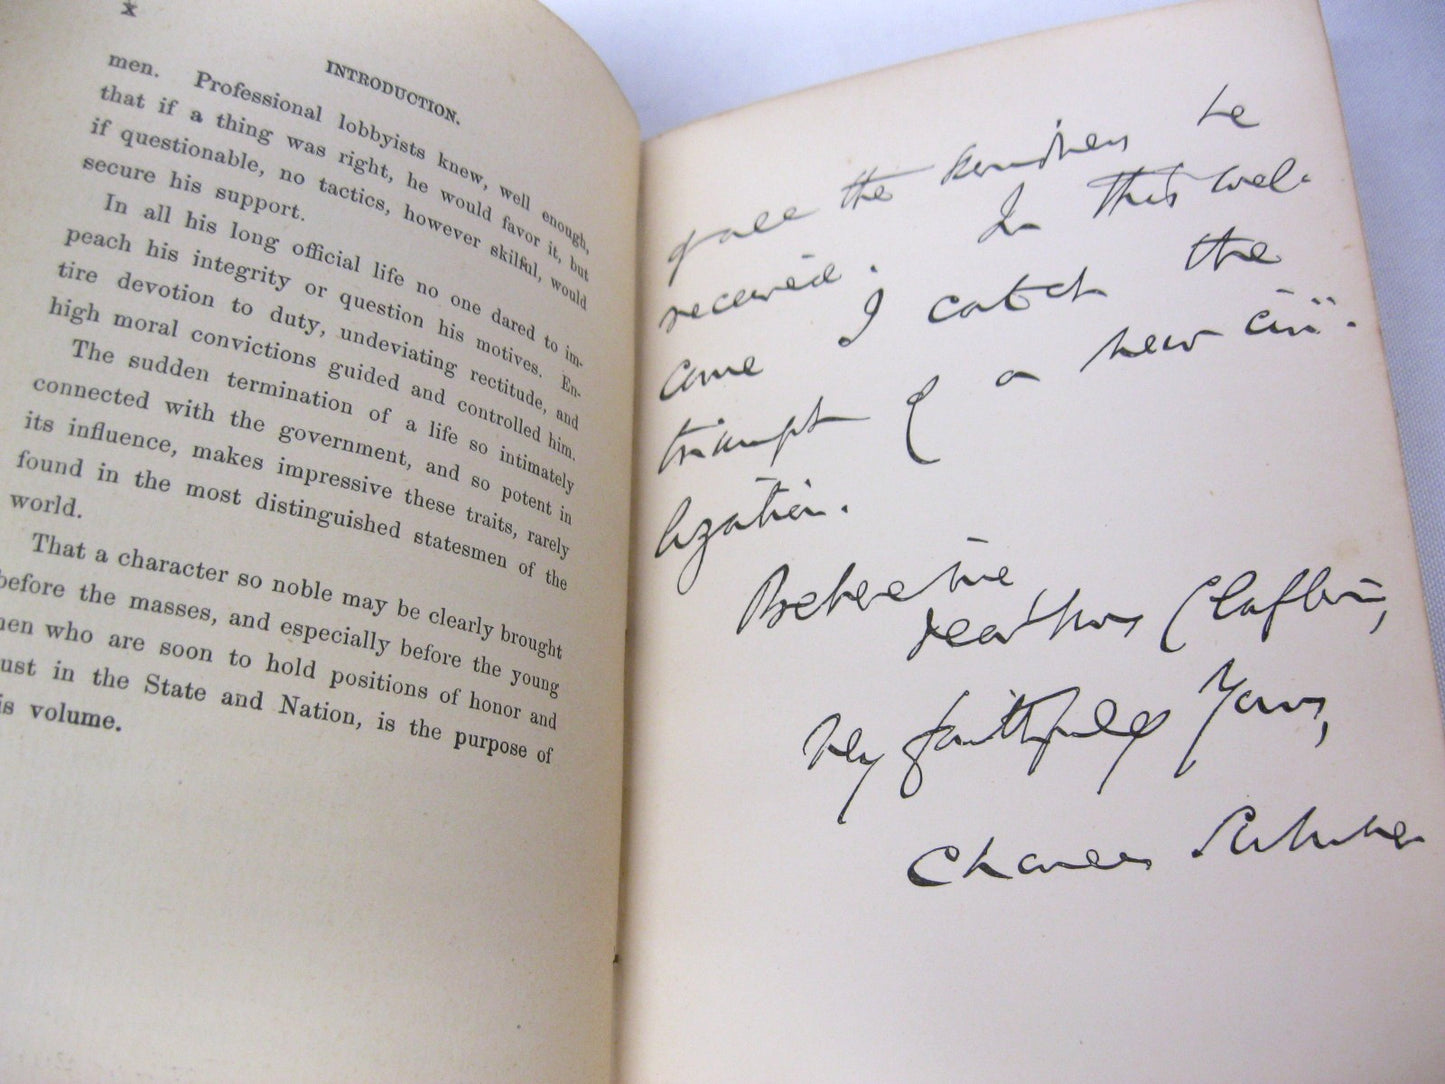 x
INTRODUCTION.
men. Professional lobbyists knew, well enough,
that if a thing was right, he would favor it, but
if questionable, no tactics, however skilful, would
secure his support.
In all his long official life no one dared to im-
peach his integrity or question his motives. En-
tire devotion to duty, undeviating rectitude, and
high moral convictions guided and controlled him.
The sudden termination of a life so intimately
connected with the government, and so potent in
its influence, makes impressive these traits, rarely
found in the most distinguished statesmen of the
world.
That a character so noble may be clearly brought
before the masses, and especially before the young
men who are soon to hold positions of honor and
ust in the State and Nation, is the purpose of
is volume.
of all the kindness he
received. In this wel-
come I catch the
triumph of a new civi-
lization.
Believe me
dear Mrs Claflin,
Very faithfully Yours,
Charles Sumner